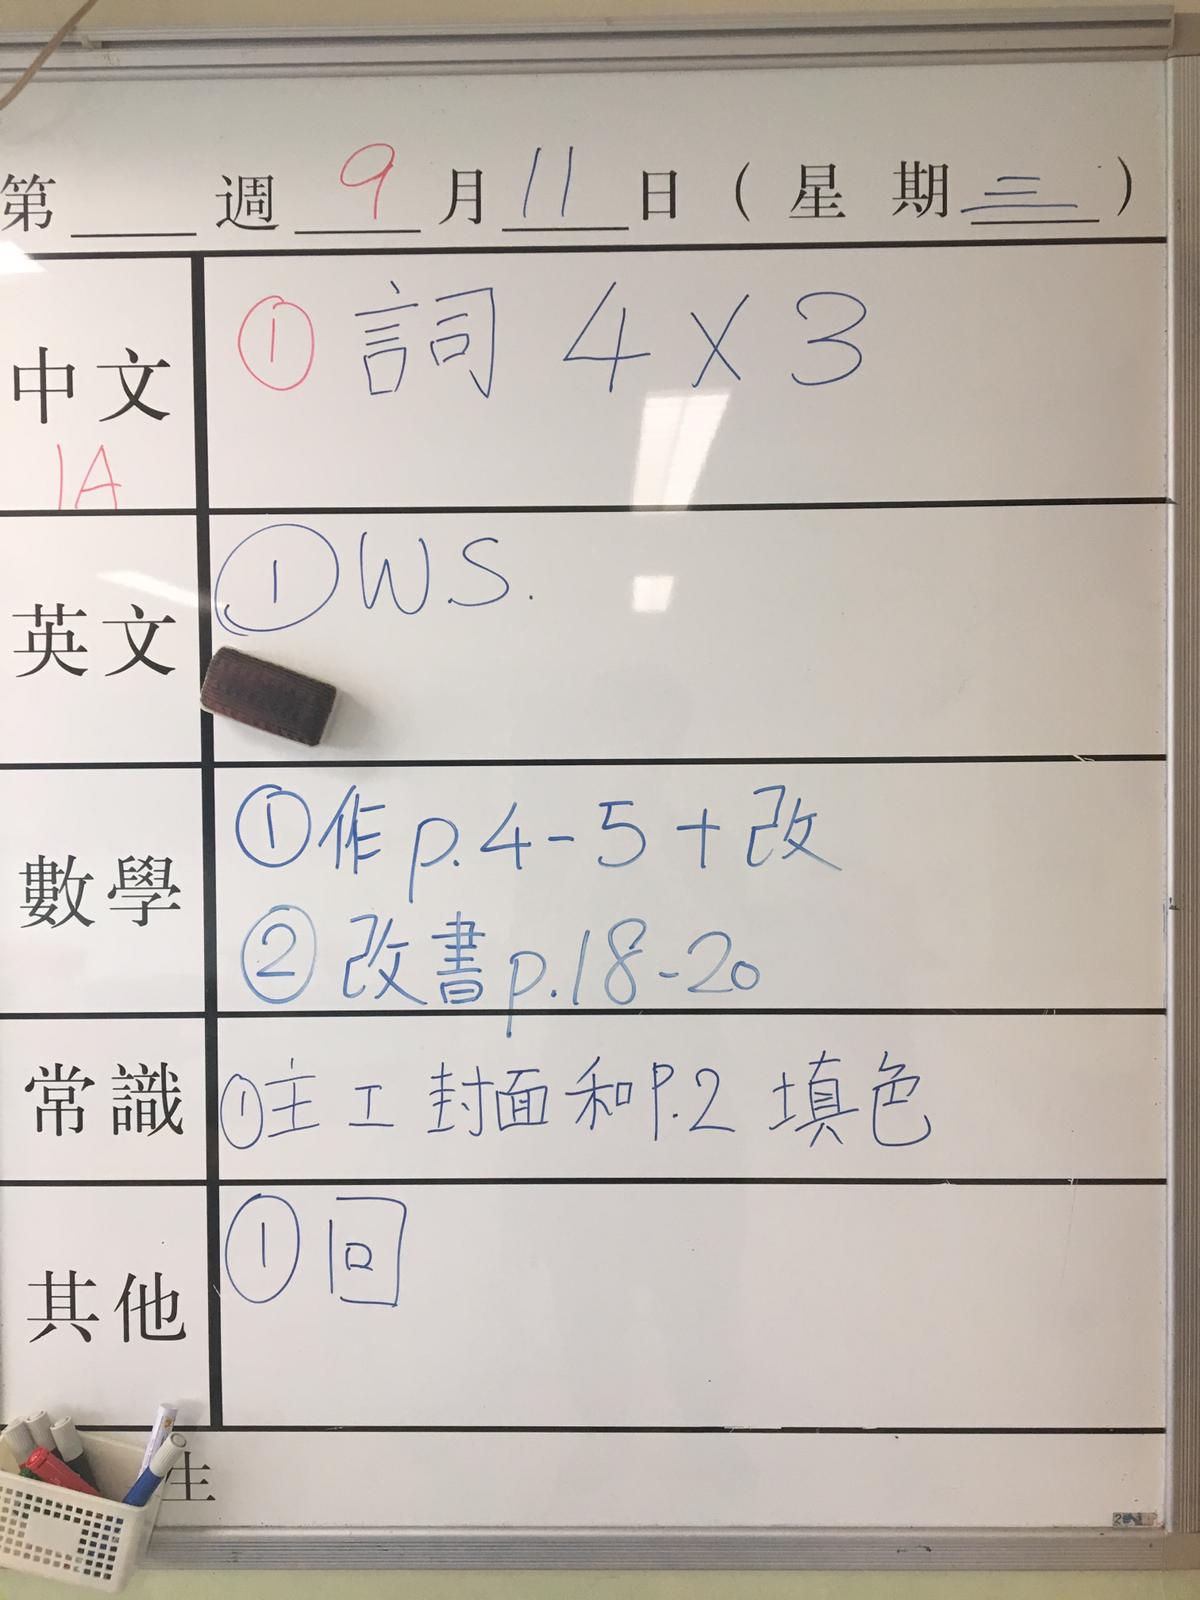 第 週 9 月 11 日 ( 星 期 三 )
中文
① 詞 4 X 3
1A
英文
① W.S.
數學
① 作 p.4-5 + 改
② 改書 p.18-20
常識
① 主工 封面和 P.2 填色
其他
① 回
生